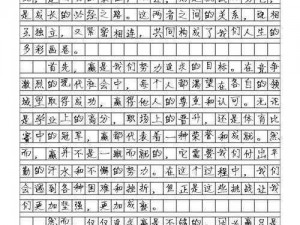 是成长的必经之路。这两者之间的关系，既相
互独立，又紧密相连，共同构成了我们人生的
多彩画卷。
首先，赢是我们努力追求的目标。在竞争
激烈的现代社会中，每个人都渴望在各自的领
域里取得成功，赢得他人的尊重和认可。无论
是学业上的高分，职场上的晋升，还是体育比
赛中的冠军，赢都代表着一种荣誉和成就。然
而，赢并不是一蹴而就的，它需要我们付出辛
勤的汗水和不懈的努力。在这个过程中，我们
会遇到各种困难和挫折，但正是这些挑战让我
们更加坚强，更加成
然而，仅仅追求赢是不够的。